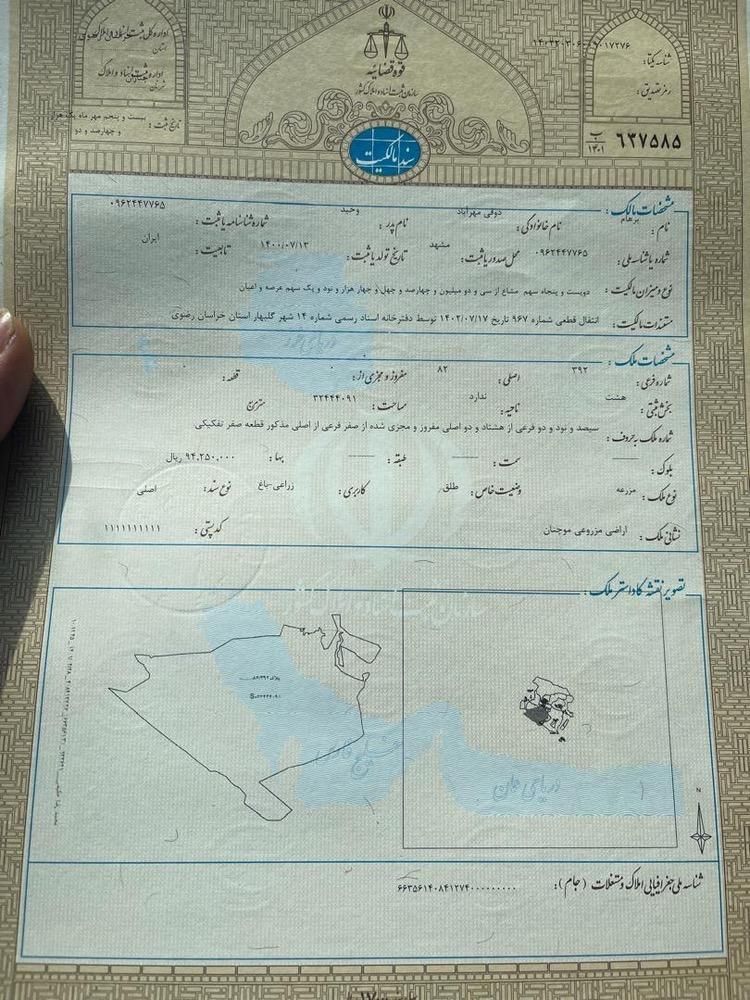 قوه قضائیه
سازمان ثبت اسناد و املاک کشور
اداره کل ثبت اسناد و املاک
استان
اداره ثبت اسناد و املاک
شهرستان
تاریخ ثبت: بیست و پنجم مهر ماه یک هزار و چهارصد و دو
شناسه یکتا:
رمز تصدیق:
سند مالکیت
۶۳۷۵۸۵ ب ۱۴۰۱
مشخصات مالک:
نام: پرهام نام خانوادگی: ذوقی مهرآباد نام پدر: وحید شماره شناسنامه یا ثبت: ۰۹۶۲۴۴۷۷۶۵
شماره یا شناسه ملی: ۰۹۶۲۴۴۷۷۶۵ محل صدور یا ثبت: مشهد تاریخ تولد یا ثبت: ۱۴۰۰/۰۷/۱۳ تابعیت: ایران
نوع و میزان مالکیت: دویست و پنجاه سهم مشاع از سی و دو میلیون و چهارصد و چهل و چهار هزار و نود و یک سهم عرصه و اعیان
مستندات مالکیت: انتقال قطعی شماره ۹۶۷ تاریخ ۱۴۰۲/۰۷/۱۷ توسط دفترخانه اسناد رسمی شماره ۱۴ شهر گلبهار استان خراسان رضوی
مشخصات ملک:
شماره فرعی: ۳۹۲ اصلی: ۸۲ مفروز و مجزی از: قطعه:
بخش ثبتی: هشت ناحیه: ندارد مساحت: ۳۲۴۴۴۰۹۱ متر مربع
شماره ملک به حروف: سیصد و نود و دو فرعی از هشتاد و دو اصلی مفروز و مجزی شده از صفر فرعی از اصلی مذکور قطعه صفر تفکیکی
بلوک: سمت: طبقه: بها: ۹۴,۲۵۰,۰۰۰ ریال
نوع ملک: مزرعه وضعیت خاص: طلق کاربری: زراعی-باغ نوع سند: اصلی
نشانی ملک: اراضی مزروعی موچنان کد پستی: ۱۱۱۱۱۱۱۱۱۱
تصویر نقشه کاداستر ملک:
خلیج فارس
دریای عمان
N
شناسه ملی جغرافیایی املاک و مستغلات (جام): ۶۶۳۵۶۱۴۰۸۴۱۲۷۴۰۰۰۰۰۰۰۰۰